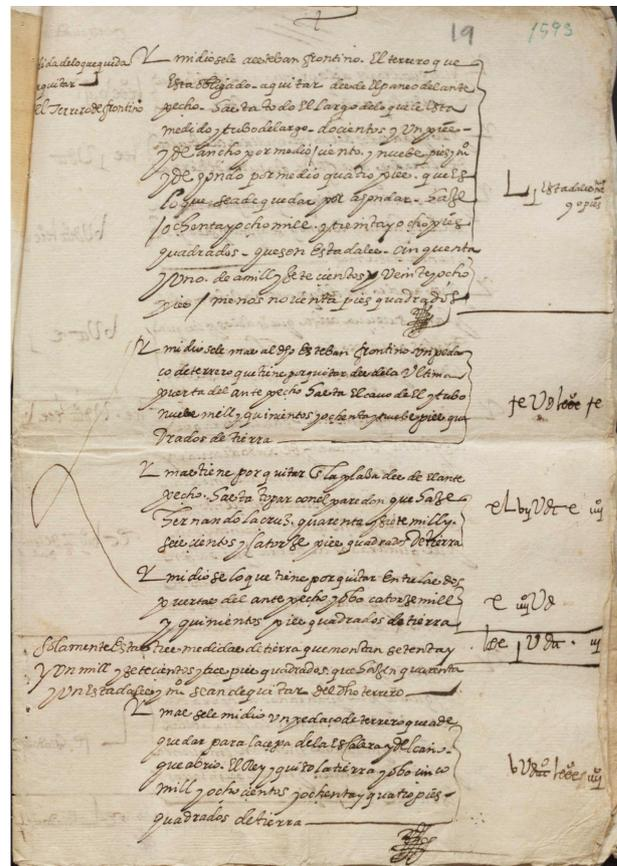 19 1593
dida de lo que queda
a quitar
El Terrero de frontino
Y midiosele a esteban frontino. El terrero que
Esta obligado a quitar desde El paneo del ante
pecho. hasta todo El largo de lo que le Esta
medido y tubo de largo docientos y Un piees
y de ancho por medio ciento y nuebe pies y mº
y de hondo por medio quatro piees. que Es
lo que sea de quedar por ahondar. haze
ochenta y ocho mill y treinta y ocho pies
quadrados. que son Estadales. cinquenta
y uno. de a mill y sete cientos y Veinte y ocho
piees menos noventa pies quadrados
Y midiosele mas al dho Esteban frontino Un peda
ço de terrero que tiene por quitar desde la Ultima
puerta del ante pecho hasta El cavo de El y tubo
nuebe mill y quinientos y ochenta y nuebe piees qua
drados de tierra
Y mas tiene por quitar En la plaça desde El ante
pecho. hasta topar con El paredon que haze
hernando la cruz. quarenta y siete mill y
seiscientos y Catorze piees quadrados De tierra
Y midiose lo que tiene por quitar Entre las dos
puertas del ante pecho y obo catorze mill
y quinientos piees quadrados de tierra
Solamente Estas tres medidas de tierra que montan setenta y
Un mill y sete cientos y tres piees quadrados. que hazen quarenta
y un Estadales y mº se an de quitar del dho terrero
Y mas sele midio Un pedaço de terrero que a de
quedar para la cepa de la Escalera y del can
que abrio. El Rey y quiso la tierra y obo cinco
mill y ocho cientos y ochenta y quatro pies
quadrados de tierra